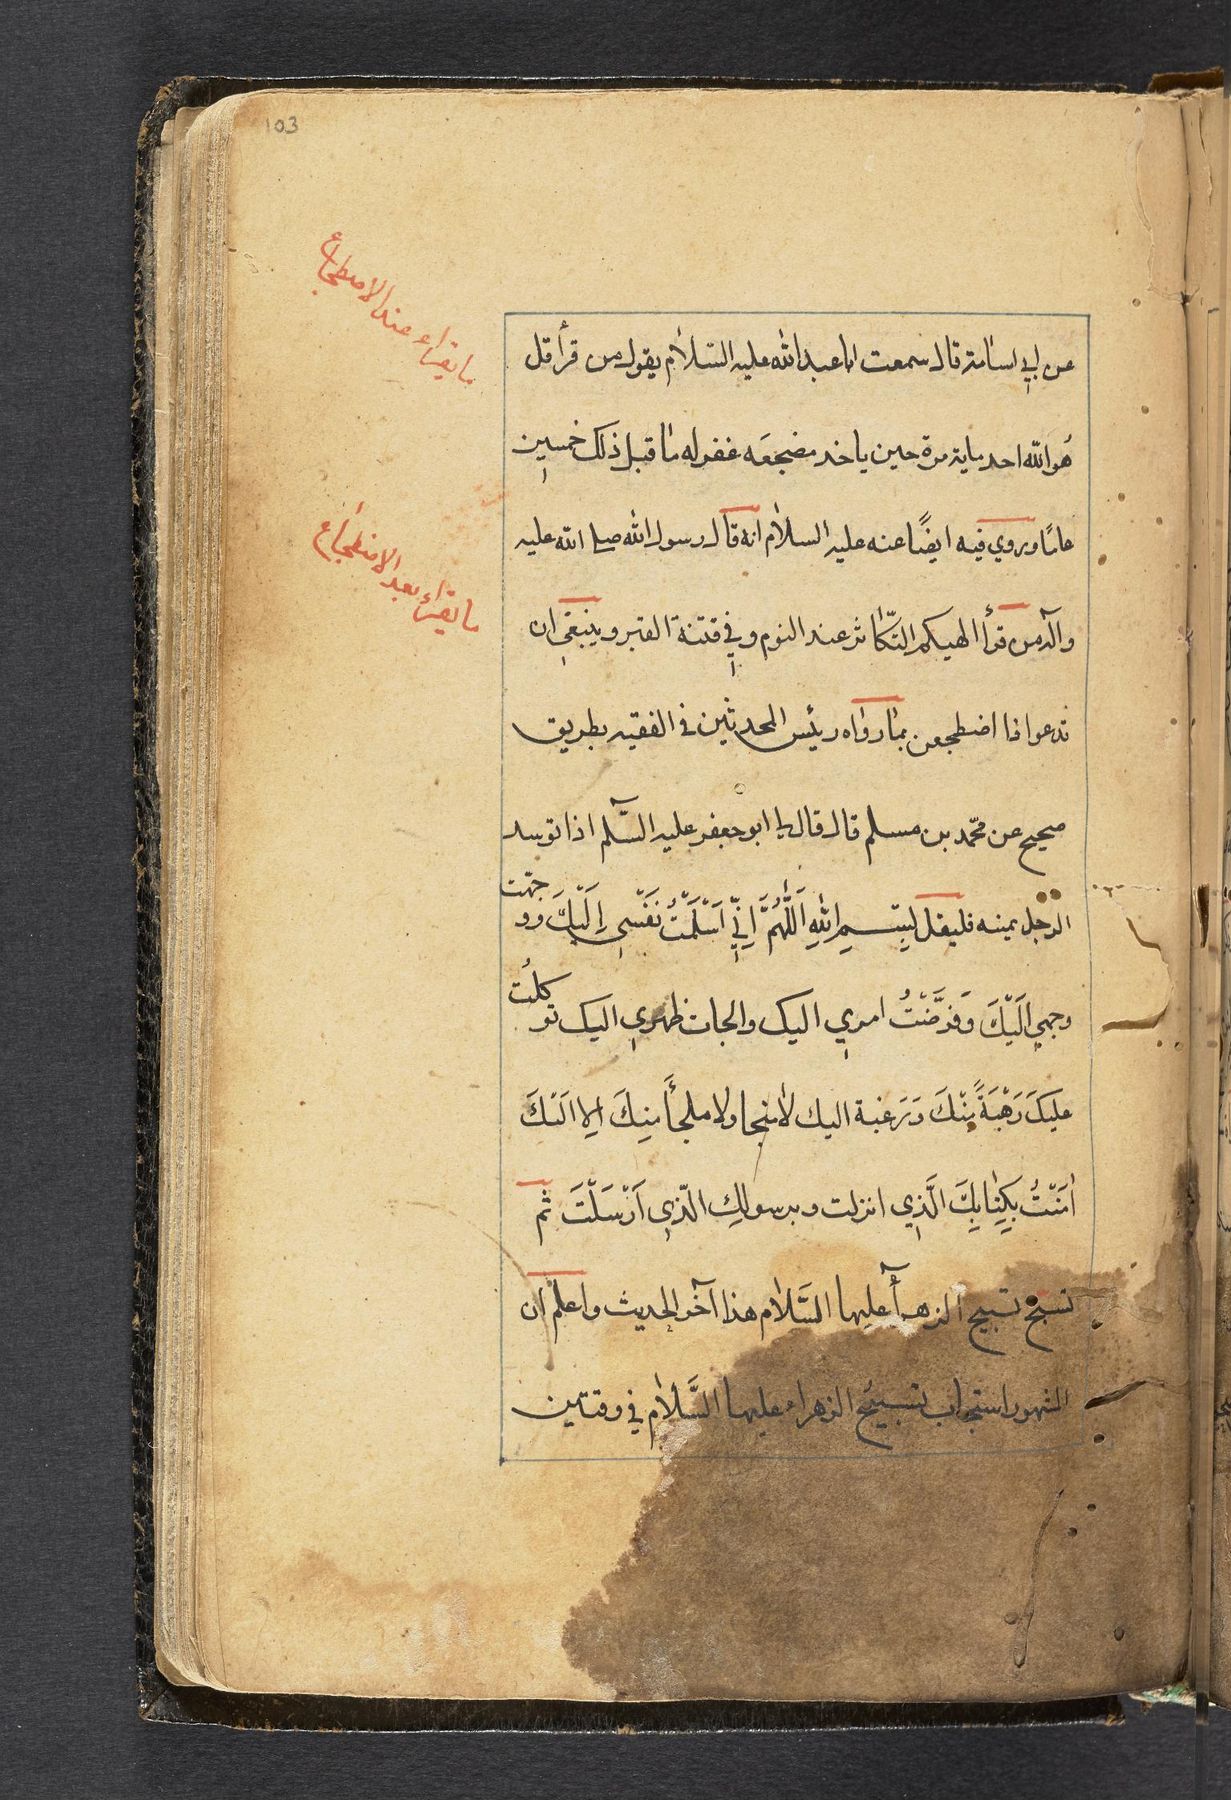 103
ما يقراء عند الاضطجاع
عن ابي اسامة قال سمعت ابا عبد الله عليه السّلام يقول من قرأ قل
هُو الله احد ماية مرة حين ياخذ مضجعَه غفر له ما قبل ذلك خمسين
عامًا وروي فيه ايضًا عنه عليه السلام انه قال رسول الله صلى الله عليه
ما يقراء بعد الاضطجاع
وآله من قرأ الهيكم التّكاثر عند النوم وفي فتنة القبر وينبغي ان
تدعوا اذا اضطجعت بما رواه رئيس المحدثين في الفقيه بطريق
صحيح عن محمّد بن مسلم قال قال لي ابو جعفر عليه السَّلم اذا توسد
الرجل يمينه فليقل بِسمِ اللهِ اَللَّهُمَّ اِنِّي اَسْلَمْتُ نَفْسِي اِلَيْكَ وو جهّت
وجهي اِلَيْكَ وَفَوَّضْتُ امري اليك والجات ظهري اليك تو كلْت
عليكَ رَهْبَةً مِنْكَ وَرَغبة اليك لا منجا ولا ملجأَ مِنكَ الا اليْكَ
اٰمَنْتُ بِكِتٰابِكَ الَّذي انزلت وبرسولك الّذي اَرْسَلْتَ ثم
تسبّح تسبيح الزهرآء عليها السَّلام هذا آخر الحديث واعلم ان
المشهور استحباب تسبيح الزهراء عليها السَّلام في وقتين